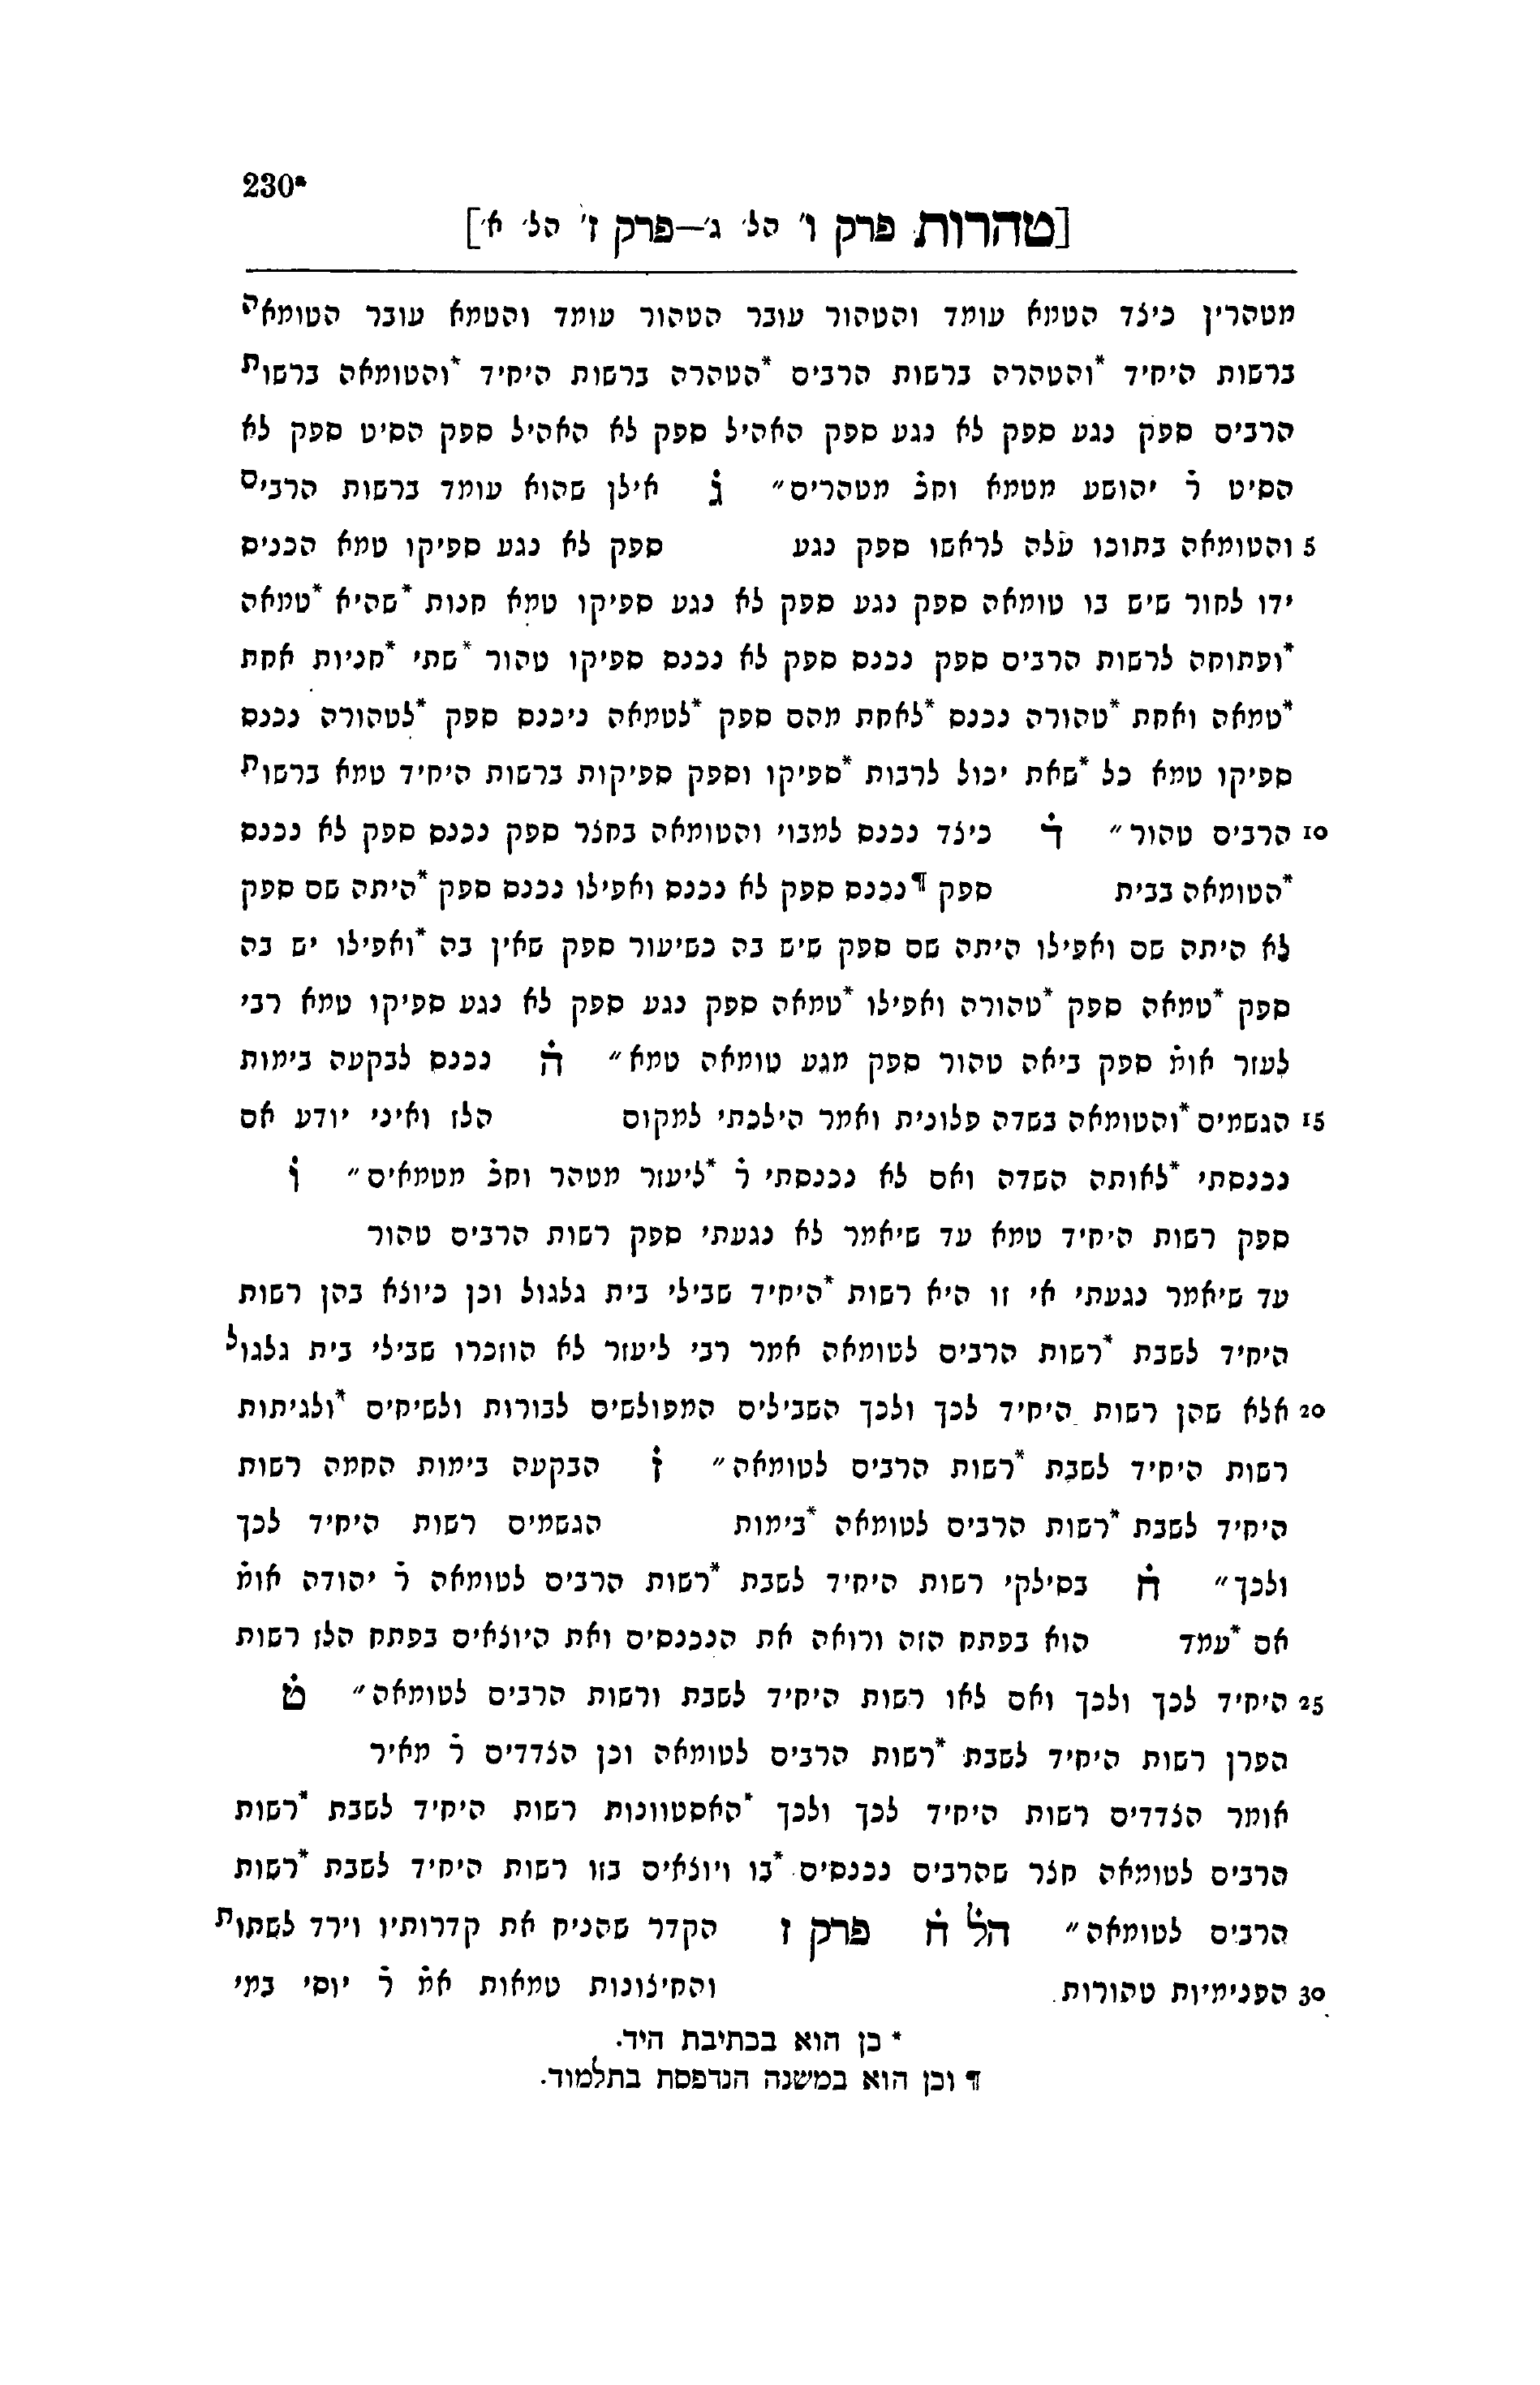 230ª
[טהרות פרק ו' הל' ג'—פרק ז' הל' א']
מטהרין כיצד הטמא עומד והטהור עובר הטהור עומד והטמא עובר הטומאה
ברשות היחיד *והטהרה ברשות הרבים *הטהרה ברשות היחיד *והטומאה ברשות
הרבים ספק נגע ספק לא נגע ספק האהיל ספק לא האהיל ספק הסיט ספק לא
הסיט ר̇ יהושע מטמא וחכ̇ מטהרים״ ג̇ אילן שהוא עומד ברשות הרבים
5 והטומאה בתוכו עלה לראשו ספק נגע ספק לא נגע ספיקו טמא הכניס
ידו לחור שיש בו טומאה ספק נגע ספק לא נגע ספיקו טמא חנות *שהיא *טמאה
*ופתוחה לרשות הרבים ספק נכנס ספק לא נכנס ספיקו טהור *שתי *חניות אחת
*טמאה ואחת *טהורה נכנס *לאחת מהם ספק *לטמאה ניכנס ספק *לטהורה נכנס
ספיקו טמא כל *שאת יכול לרבות *ספיקו וספק ספיקות ברשות היחיד טמא ברשות
10 הרבים טהור״ ד̇ כיצד נכנס למבוי והטומאה בחצר ספק נכנס ספק לא נכנס
*הטומאה בבית ספק ¶נכנס ספק לא נכנס ואפילו נכנס ספק *היתה שם ספק
לא היתה שם ואפילו היתה שם ספק שיש בה כשיעור ספק שאין בה *ואפילו יש בה
ספק *טמאה ספק *טהורה ואפילו *טמאה ספק נגע ספק לא נגע ספיקו טמא רבי
לעזר אומ̇ ספק ביאה טהור ספק מגע טומאה טמא״ ה̇ נכנס לבקעה בימות
15 הגשמים *והטומאה בשדה פלונית ואמר הילכתי למקום הלז ואיני יודע אם
נכנסתי *לאותה השדה ואם לא נכנסתי ר̇ *ליעזר מטהר וחכ̇ מטמאים״ ו̇
ספק רשות היחיד טמא עד שיאמר לא נגעתי ספק רשות הרבים טהור
עד שיאמר נגעתי אי זו היא רשות *היחיד שבילי בית גלגול וכן כיוצא בהן רשות
היחיד לשבת *רשות הרבים לטומאה אמר רבי ליעזר לא הוזכרו שבילי בית גלגול
20 אלא שהן רשות היחיד לכך ולכך השבילים המפולשים לבורות ולשיחים *ולגיתות
רשות היחיד לשבת *רשות הרבים לטומאה״ ז̇ הבקעה בימות החמה רשות
היחיד לשבת *רשות הרבים לטומאה *בימות הגשמים רשות היחיד לכך
ולכך״ ח̇ בסילקי רשות היחיד לשבת *רשות הרבים לטומאה ר̇ יהודה אומ̇
אם *עמד הוא בפתח הזה ורואה את הנכנסים ואת היוצאים בפתח הלז רשות
25 היחיד לכך ולכך ואם לאו רשות היחיד לשבת ורשות הרבים לטומאה״ ט̇
הפרן רשות היחיד לשבת *רשות הרבים לטומאה וכן הצדדים ר̇ מאיר
אומר הצדדים רשות היחיד לכך ולכך *האסטוונות רשות היחיד לשבת *רשות
הרבים לטומאה חצר שהרבים נכנסים *בו ויוצאים בזו רשות היחיד לשבת *רשות
הרבים לטומאה״ הל̇ ח̇ פרק ז הקדר שהניח את קדרותיו וירד לשתות
30 הפנימיות טהורות והחיצונות טמאות אמ̇ ר̇ יוסי במי
* כן הוא בכתיבת היד.
¶ וכן הוא במשנה הנדפסת בתלמוד.